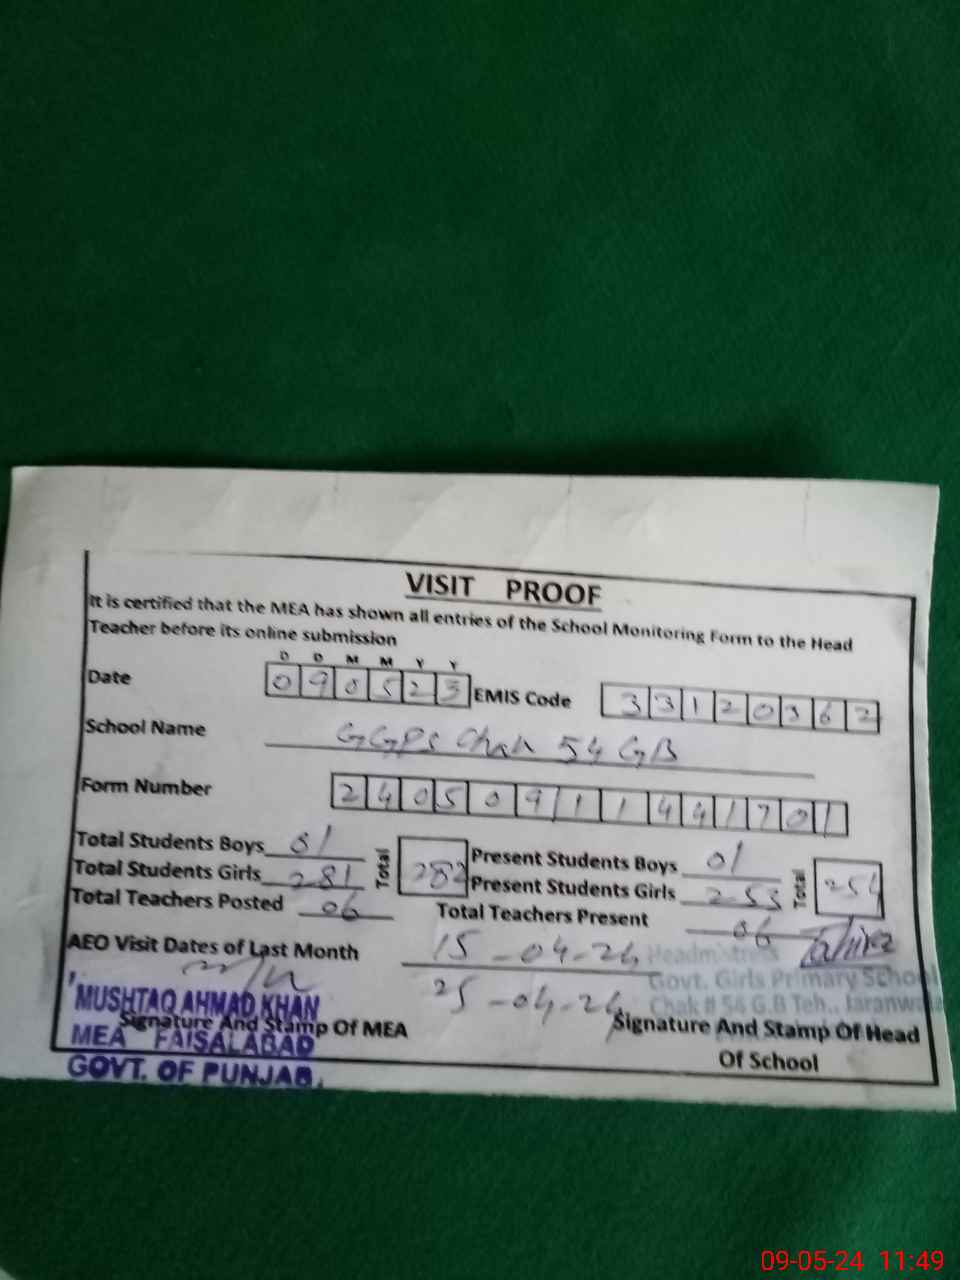 VISIT PROOF
It is certified that the MEA has shown all entries of the School Monitoring Form to the Head
Teacher before its online submission
D D M M Y Y
Date 0 9 0 5 2 EMIS Code 3 3 1 2 0 3 6 2
School Name GGPS Chak 54 GB
Form Number 2 4 0 5 0 9 1 1 4 4 1 7 0 1
Total Students Boys 01 Total 282 Present Students Boys 01 Total 254
Total Students Girls 281 Present Students Girls 253
Total Teachers Posted 06 Total Teachers Present 06
AEO Visit Dates of Last Month 15-04-24
25-04-24
Tahira
Headmistress
Govt. Girls Primary School
Chak # 54 G.B Teh., Jaranwala
MUSHTAQ AHMAD KHAN
Signature And Stamp Of MEA
MEA FAISALABAD
GOVT. OF PUNJAB.
Signature And Stamp Of Head
Of School
09-05-24 11:49